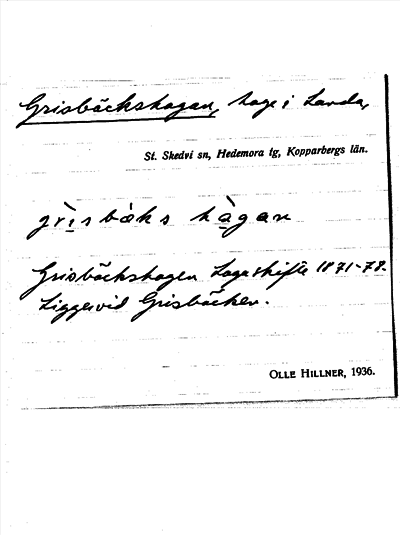 Grisbäckshagan, hage i Landa,
St. Skedvi sn, Hedemora tg, Kopparbergs län.
grìsbàks hàgan
Grisbäckshagen Laga skifte 1871-78.
Ligger vid Grisbäcken.
OLLE HILLNER, 1936.